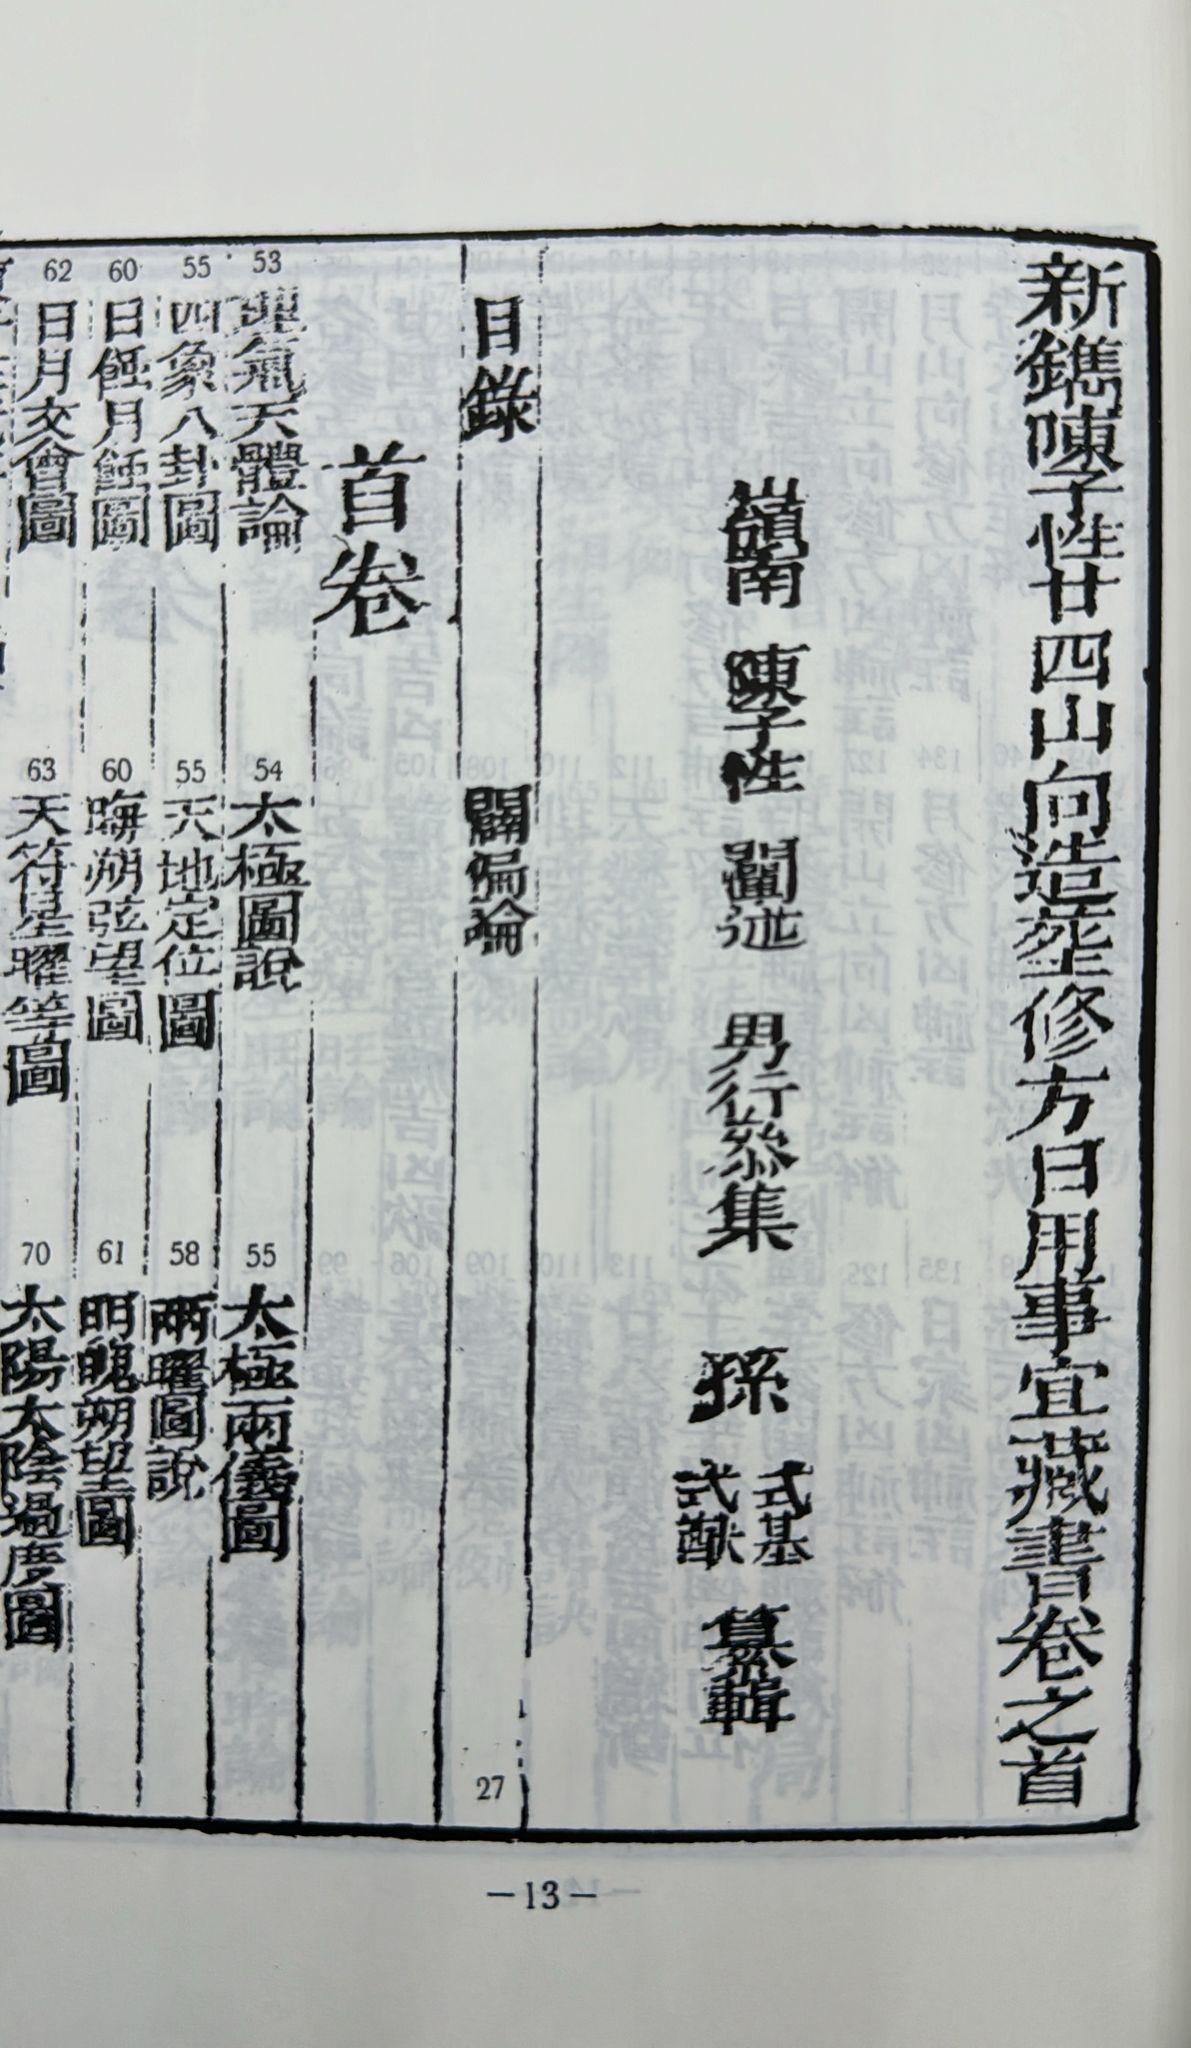 新鐫陳子性廿四山向造塟修方日用事宜藏書卷之首
嶺南 陳子性 闡述 男行叅集 孫 式基 式猷 纂輯
目錄 闢偏論 27
首卷
53 氣天體論 54 太極圖說 55 太極兩儀圖
55 四象八卦圖 55 天地定位圖 58 兩曜圖說
60 日蝕月蝕圖 60 晦朔弦望圖 61 明魄朔望圖
62 日月交會圖 63 天符星曜等圖 70 太陽太陰過度圖
—13—